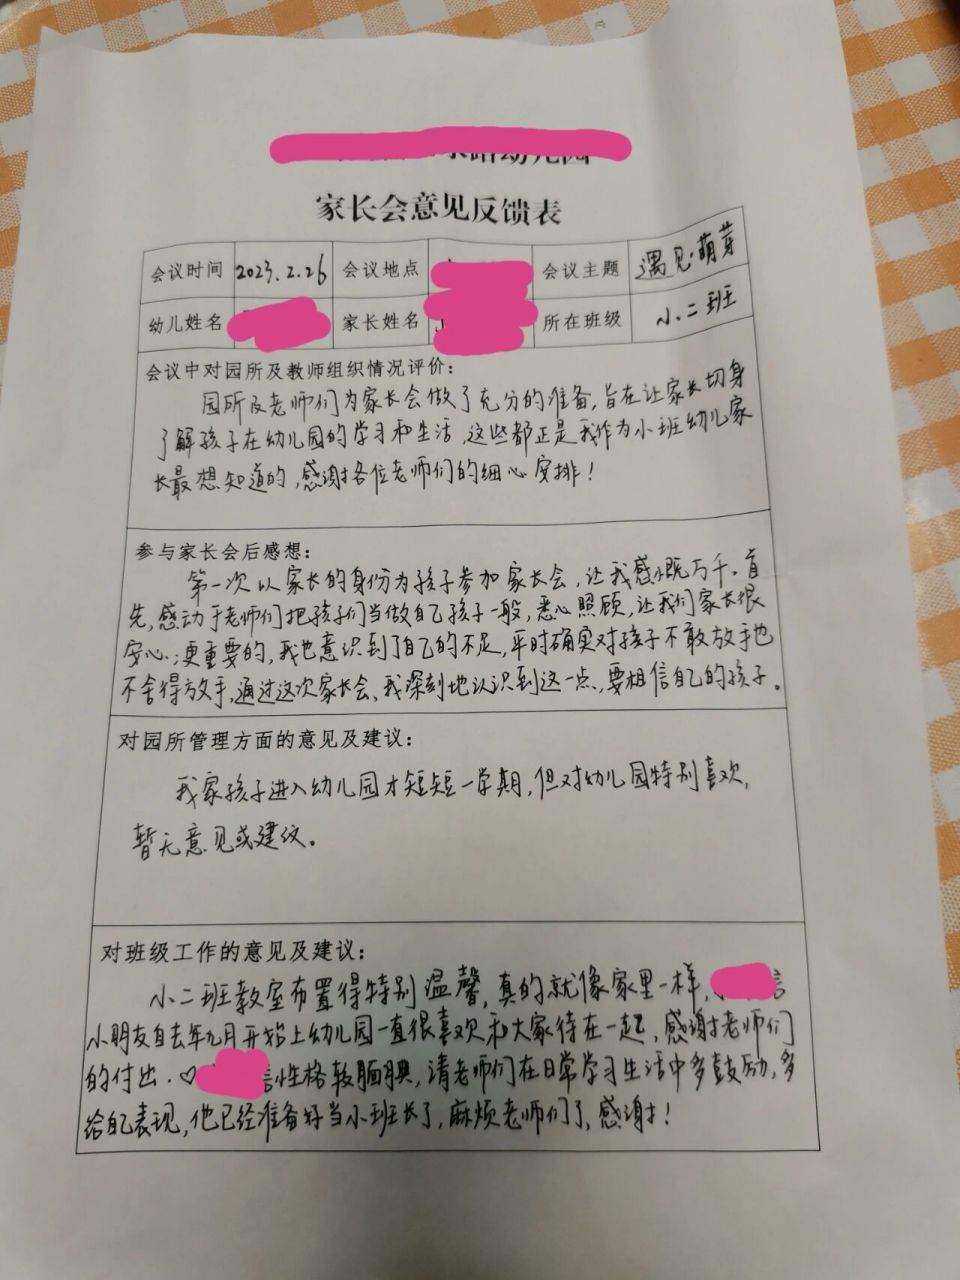 幼儿园
家长会意见反馈表
会议时间 2023.2.26 会议地点 会议主题 遇见·萌芽
幼儿姓名 家长姓名 所在班级 小二班
会议中对园所及教师组织情况评价：
园所及老师们为家长会做了充分的准备，旨在让家长切身
了解孩子在幼儿园的学习和生活，这些都正是我作为小班幼儿家
长最想知道的，感谢各位老师们的细心安排！
参与家长会后感想：
第一次以家长的身份为孩子参加家长会，让我感慨万千。首
先，感动于老师们把孩子们当做自己孩子一般，悉心照顾，让我们家长很
安心；更重要的，我也意识到了自己的不足，平时确实对孩子不敢放手也
不舍得放手，通过这次家长会、我深刻地认识到这一点，要相信自己的孩子。
对园所管理方面的意见及建议：
我家孩子进入幼儿园才短短一学期，但对幼儿园特别喜欢，
暂无意见或建议。
对班级工作的意见及建议：
小二班教室布置得特别温馨，真的就像家里一样，
小朋友自去年九月开始上幼儿园一直很喜欢和大家待在一起，感谢老师们
的付出。♡ 性格较腼腆，请老师们在日常学习生活中多鼓励，多
给自己表现，他已经准备好当小班长了，麻烦老师们了，感谢！